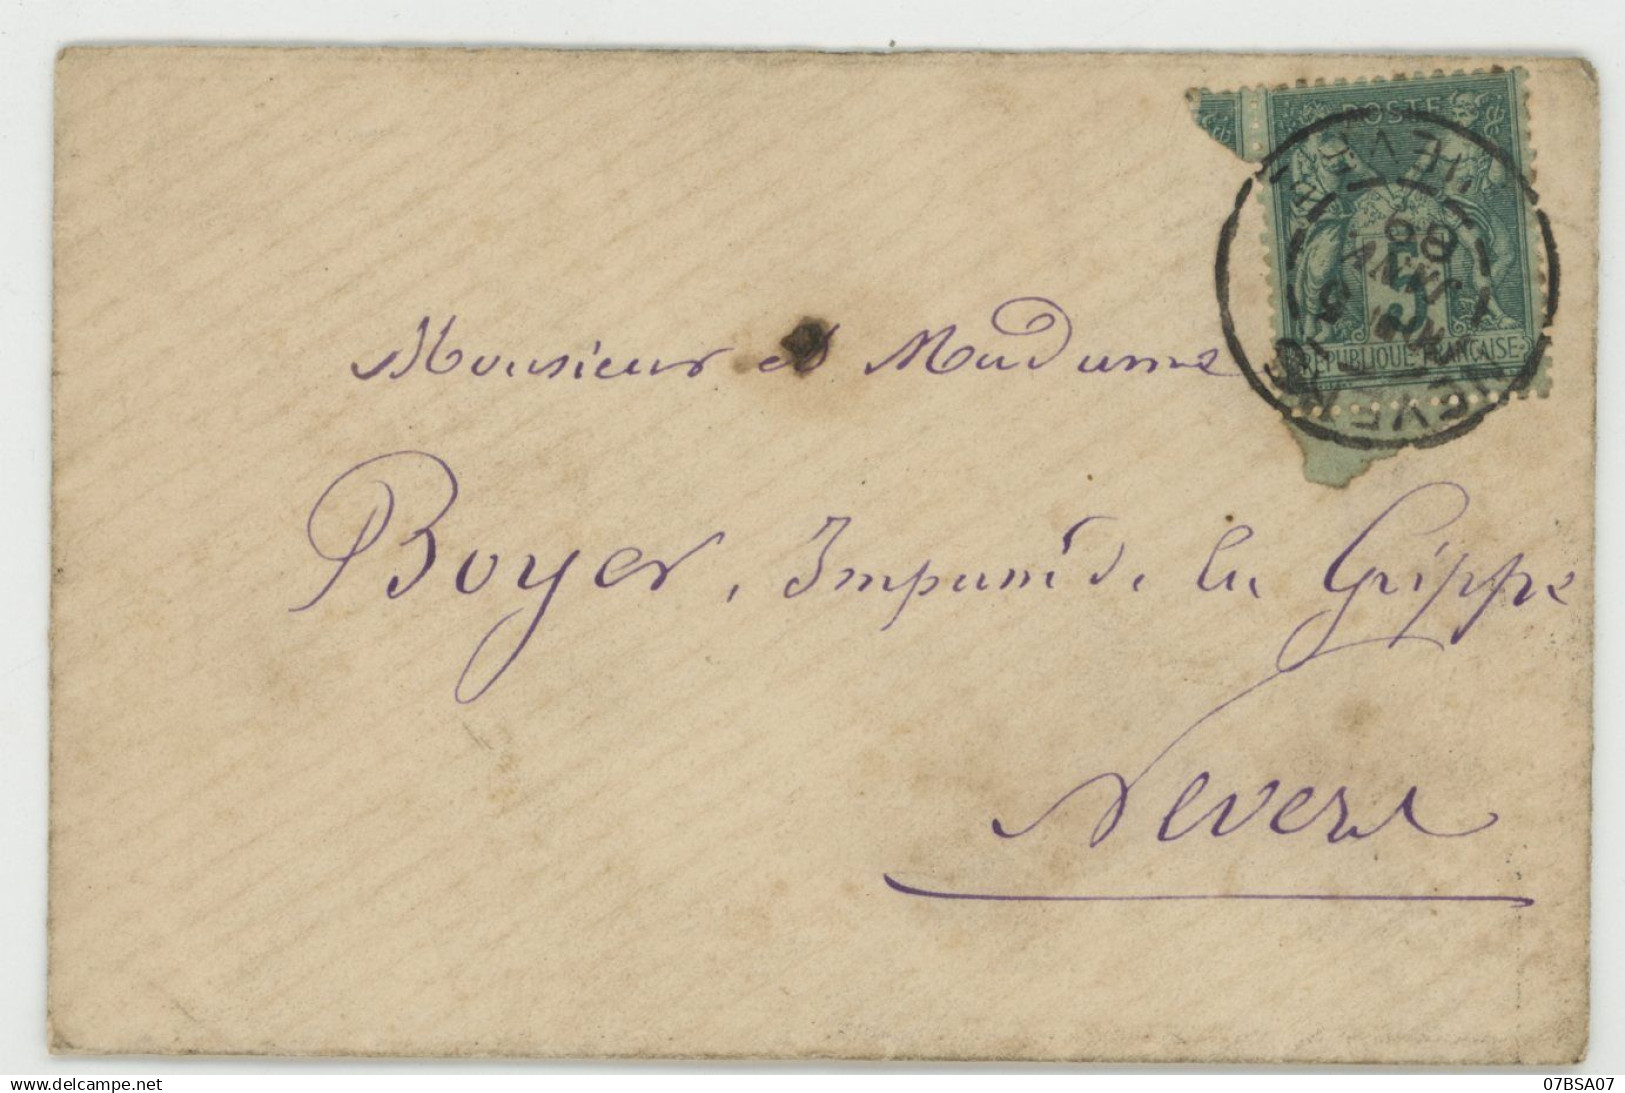 POSTE
5
RÉPUBLIQUE FRANÇAISE
NEVERS
5
JANV
89
NIEVRE
Monsieur et Madame
Boyer, Imprimr de la Grippe
Nevers
delcampe.net
07BSA07